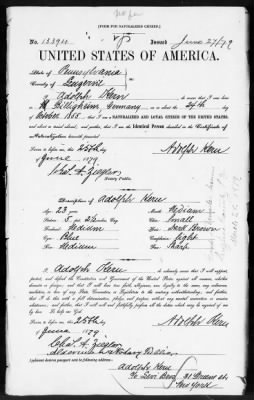 [FORM FOR NATURALIZED CITIZEN.]
No. 133911 Issued June 27/79
UNITED STATES OF AMERICA.
State of Pennsylvania
County of Luzerne
I, Adolph Kern do swear that I was born
in Billigheim, Germany on or about the 24th day
of October 1855, that I am a NATURALIZED AND LOYAL CITIZEN OF THE UNITED STATES,
and about to travel abroad; and further, that I am the Identical Person described in the Certificate of
Naturalization herewith presented.
Sworn to before me, this 25th day of
June 1879
Adolph Kern
Chas. A. Ziegler
Notary Public.
Description of Adolph Kern
Age: 23 years
Mouth: Medium
Stature: 5 feet inches, Eng.
Chin: Small
Forehead: Medium
Hair: Dark Brown
Eyes: Blue
Complexion: Light
Nose: Medium
Face: Sharp
I, Adolph Kern do solemnly swear that I will support,
protect, and defend the Constitution and Government of the United States against all enemies, whether
domestic or foreign; and that I will bear true faith, allegiance and loyalty to the same, any ordinance,
resolution or law of any State, Convention or Legislature to the contrary notwithstanding; and further,
that I do this with a full determination, pledge and purpose, without any mental reservation or evasion
whatsoever; and further, that I will well and faithfully perform all the duties which may be required of me
by law. So help me God.
Sworn to before me, this 25th day of
June 1879
Adolph Kern
Chas. A. Ziegler
Notary Public
Applicant desires passport sent to following address:
Adolph Kern
New York